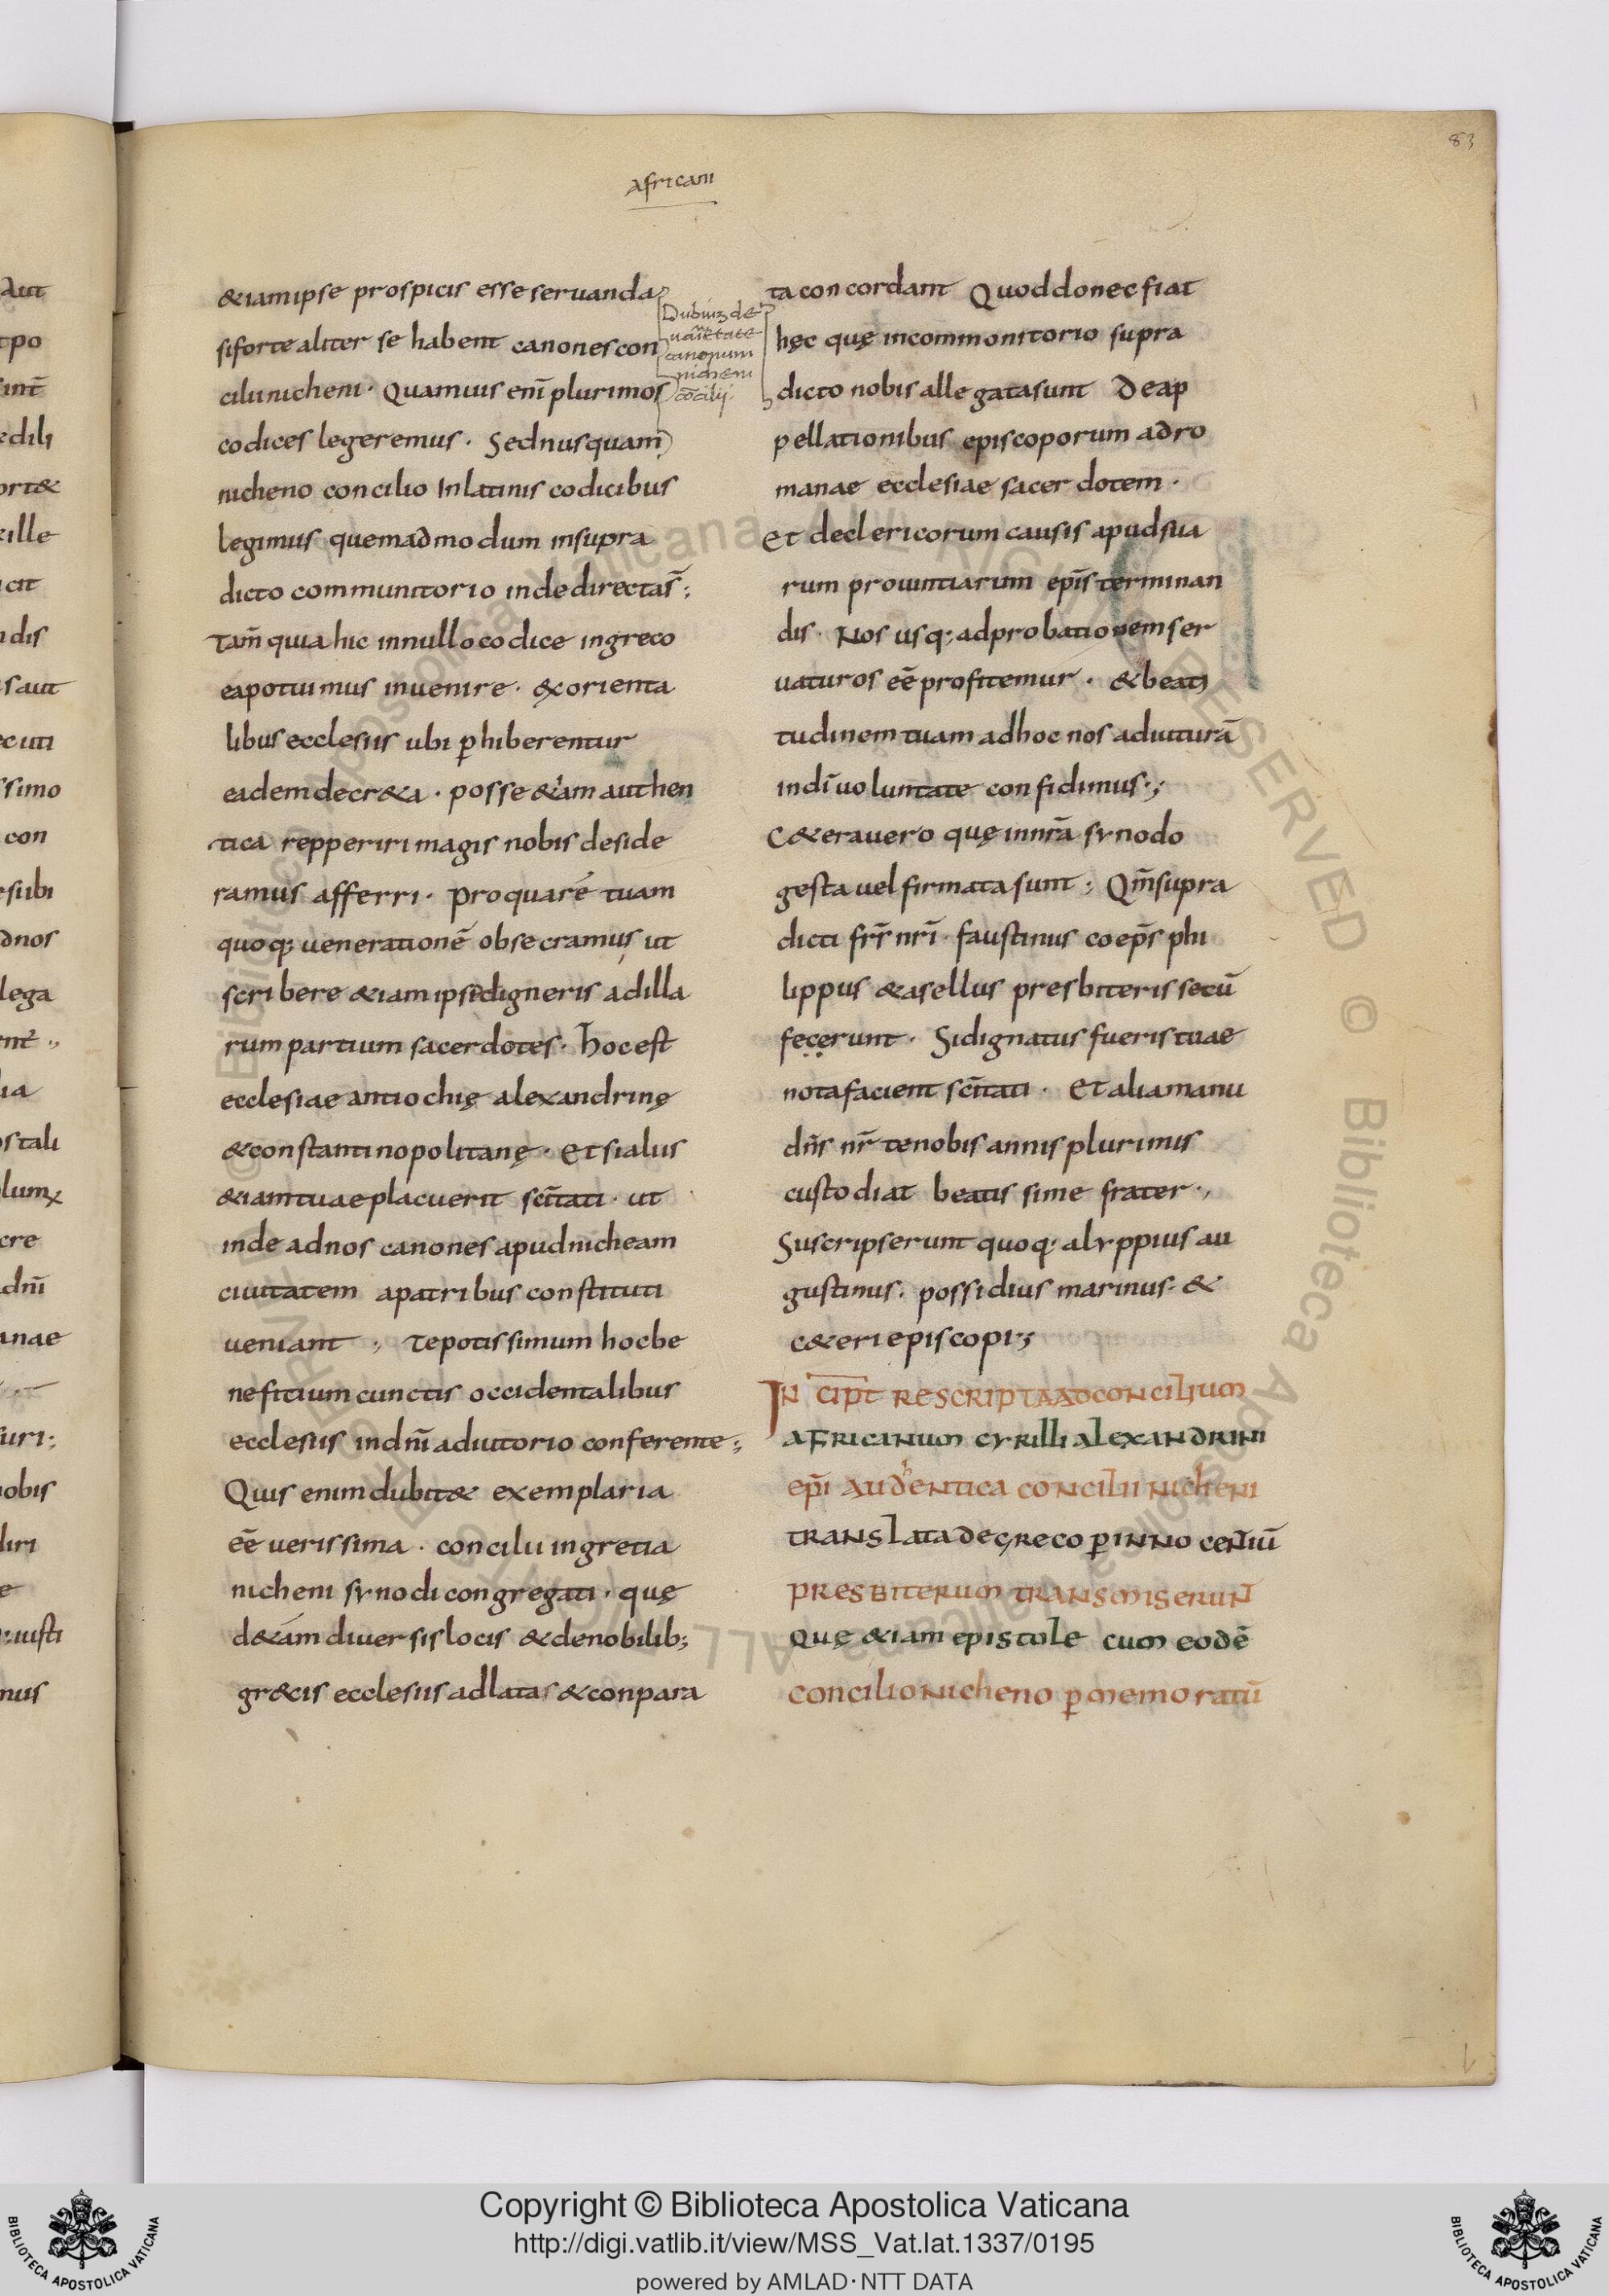 83
africani
&iam ipse prospicis esse seruanda
si forte aliter se habent canones con
cilii nicheni · Quamuis eni᷒ plurimos
codices legeremus · Sed nusquam
nicheno concilio In latinis codicibus
legimus quemadmodum in supra
dicto communitorio inde directas̄ ;
Tam̄ quia hic in nullo codice in greco
ea potuimus inuenire · &x orienta
libus ecclesiis ubi ꝑhiberentur
eadem decr&a · posse &iam authen
tica repperiri magis nobis deside
ramus afferri · Pro qua rē tuam
quoq; uenerationē obsecramus ut
scribere &iam ipse digneris ad illa
rum partium sacerdotes · hoc est
ecclesiae antiochię alexandrinę
& constantinopolitanę · Et si aliis
&iam tuae placuerit sc̄itati · ut
inde ad nos canones apud nicheam
ciuitatem a patribus constituti
ueniant ; Te potissimum hoc be
nefitium cunctis occidentalibus
ecclesiis in dnī adiutorio conferente ;
Quis enim dubit& exemplaria
eē uerissima · concilii in gretia
nicheni synodi congregati · quę
d&am diuersis locis & de nobilib;
gr&cis ecclesiis adlata & conpara
Dubiuȝ de
uarietate
canonum
nicheni
cōcilij
ta concordant Quod donec fiat
hęc quę in commonitorio supra
dicto nobis allegata sunt De ap
pellationibus episcoporum ad ro
manae ecclesiae sacerdotem ·
Et de clericorum causis apud sua
rum prouintiarum epīs terminan
dis · Nos usq; ad probationem ser
uaturos eē profitemur · & beati
tudinem tuam ad hoc nos adiuturā
in dī uoluntate confidimus ·;
C&era uero quę in nrā synodo
gesta uel firmata sunt ; Qm̄ supra
dicti frr̄ nrī · faustinus coepīs phi
lippus & asellus presbiteris secū
fecerunt · Si dignatus fueris tuae
nota facient sc̄itati · Et alia manu
dn̄s nr̄ te nobis annis plurimis
custodiat beatissime frater ·,
Suscripserunt quoq; alyppius au
gustinus · possidius marinus · &
c&eri episcopi ;
INCIPT̄ RESCRIPTA AD CONCILIUM
AFRICANUM CYRILLI ALEXANDRINI
epī AUDhENTICA CONCILII NICHENI
TRANSLATA DE GRECO ꝑ INNOCENTIŪ
PRESBITERUM TRANSMISERUNT
QUę &IAM EPISTOLE CUM EODĒ
CONCILIO NICHENO ꝑ MEMORATŪ
Copyright © Biblioteca Apostolica Vaticana
http://digi.vatlib.it/view/MSS_Vat.lat.1337/0195
powered by AMLAD·NTT DATA
BIBLIOTECA APOSTOLICA VATICANA
BIBLIOTECA APOSTOLICA VATICANA